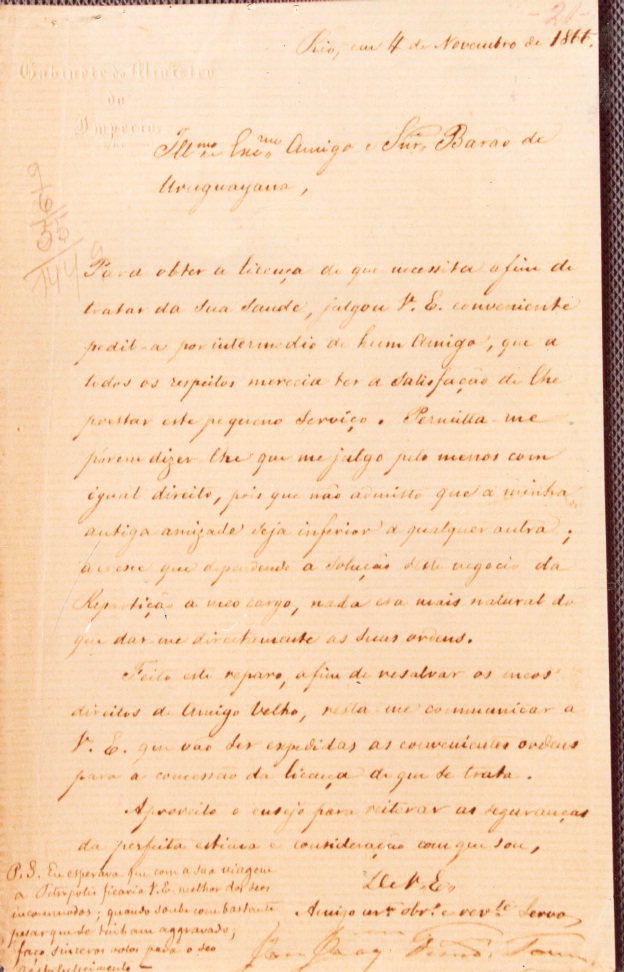 - 21 -
Rio, em 4 de Novembro de 1866.
Gabinete do Ministro
do
Imperio
Illmo e Exmo Amigo e Snr. Barão de
Uruguayana,
Para obter a licença de que necessita afim de
tratar da sua saude, julgou V. E. conveniente
pedil-a por intermedio de hum Amigo, que a
todos os respeitos merecia ter a satisfação de lhe
prestar este pequeno serviço. Permitta-me
porem dizer lhe que me julgo pelo menos com
igual direito, pois que não admitto que a minha
antiga amizade seja inferior a qualquer outra;
accresce que dependendo a solução deste negocio da
Repartição a meo cargo, nada era mais natural do
que dar-me directamente as suas ordens.
Feito este reparo, afim de resalvar os meos
direitos de Amigo Velho, resta-me communicar a
V. E. que vão ser expedidas as convenientes ordens
para a concessão da licença de que se trata.
Aproveito o ensejo para reiterar as seguranças
da perfeita estima e consideração com que sou,
De V. E.
Amigo mto obro e revte Servo
P. S. Eu esperava que com a sua viagem
a Petropolis ficaria V. E. melhor dos seos
incommodos; quando soube com bastante
pesar que se tinham aggravado;
faço sinceros votos para o seo
restabelecimento